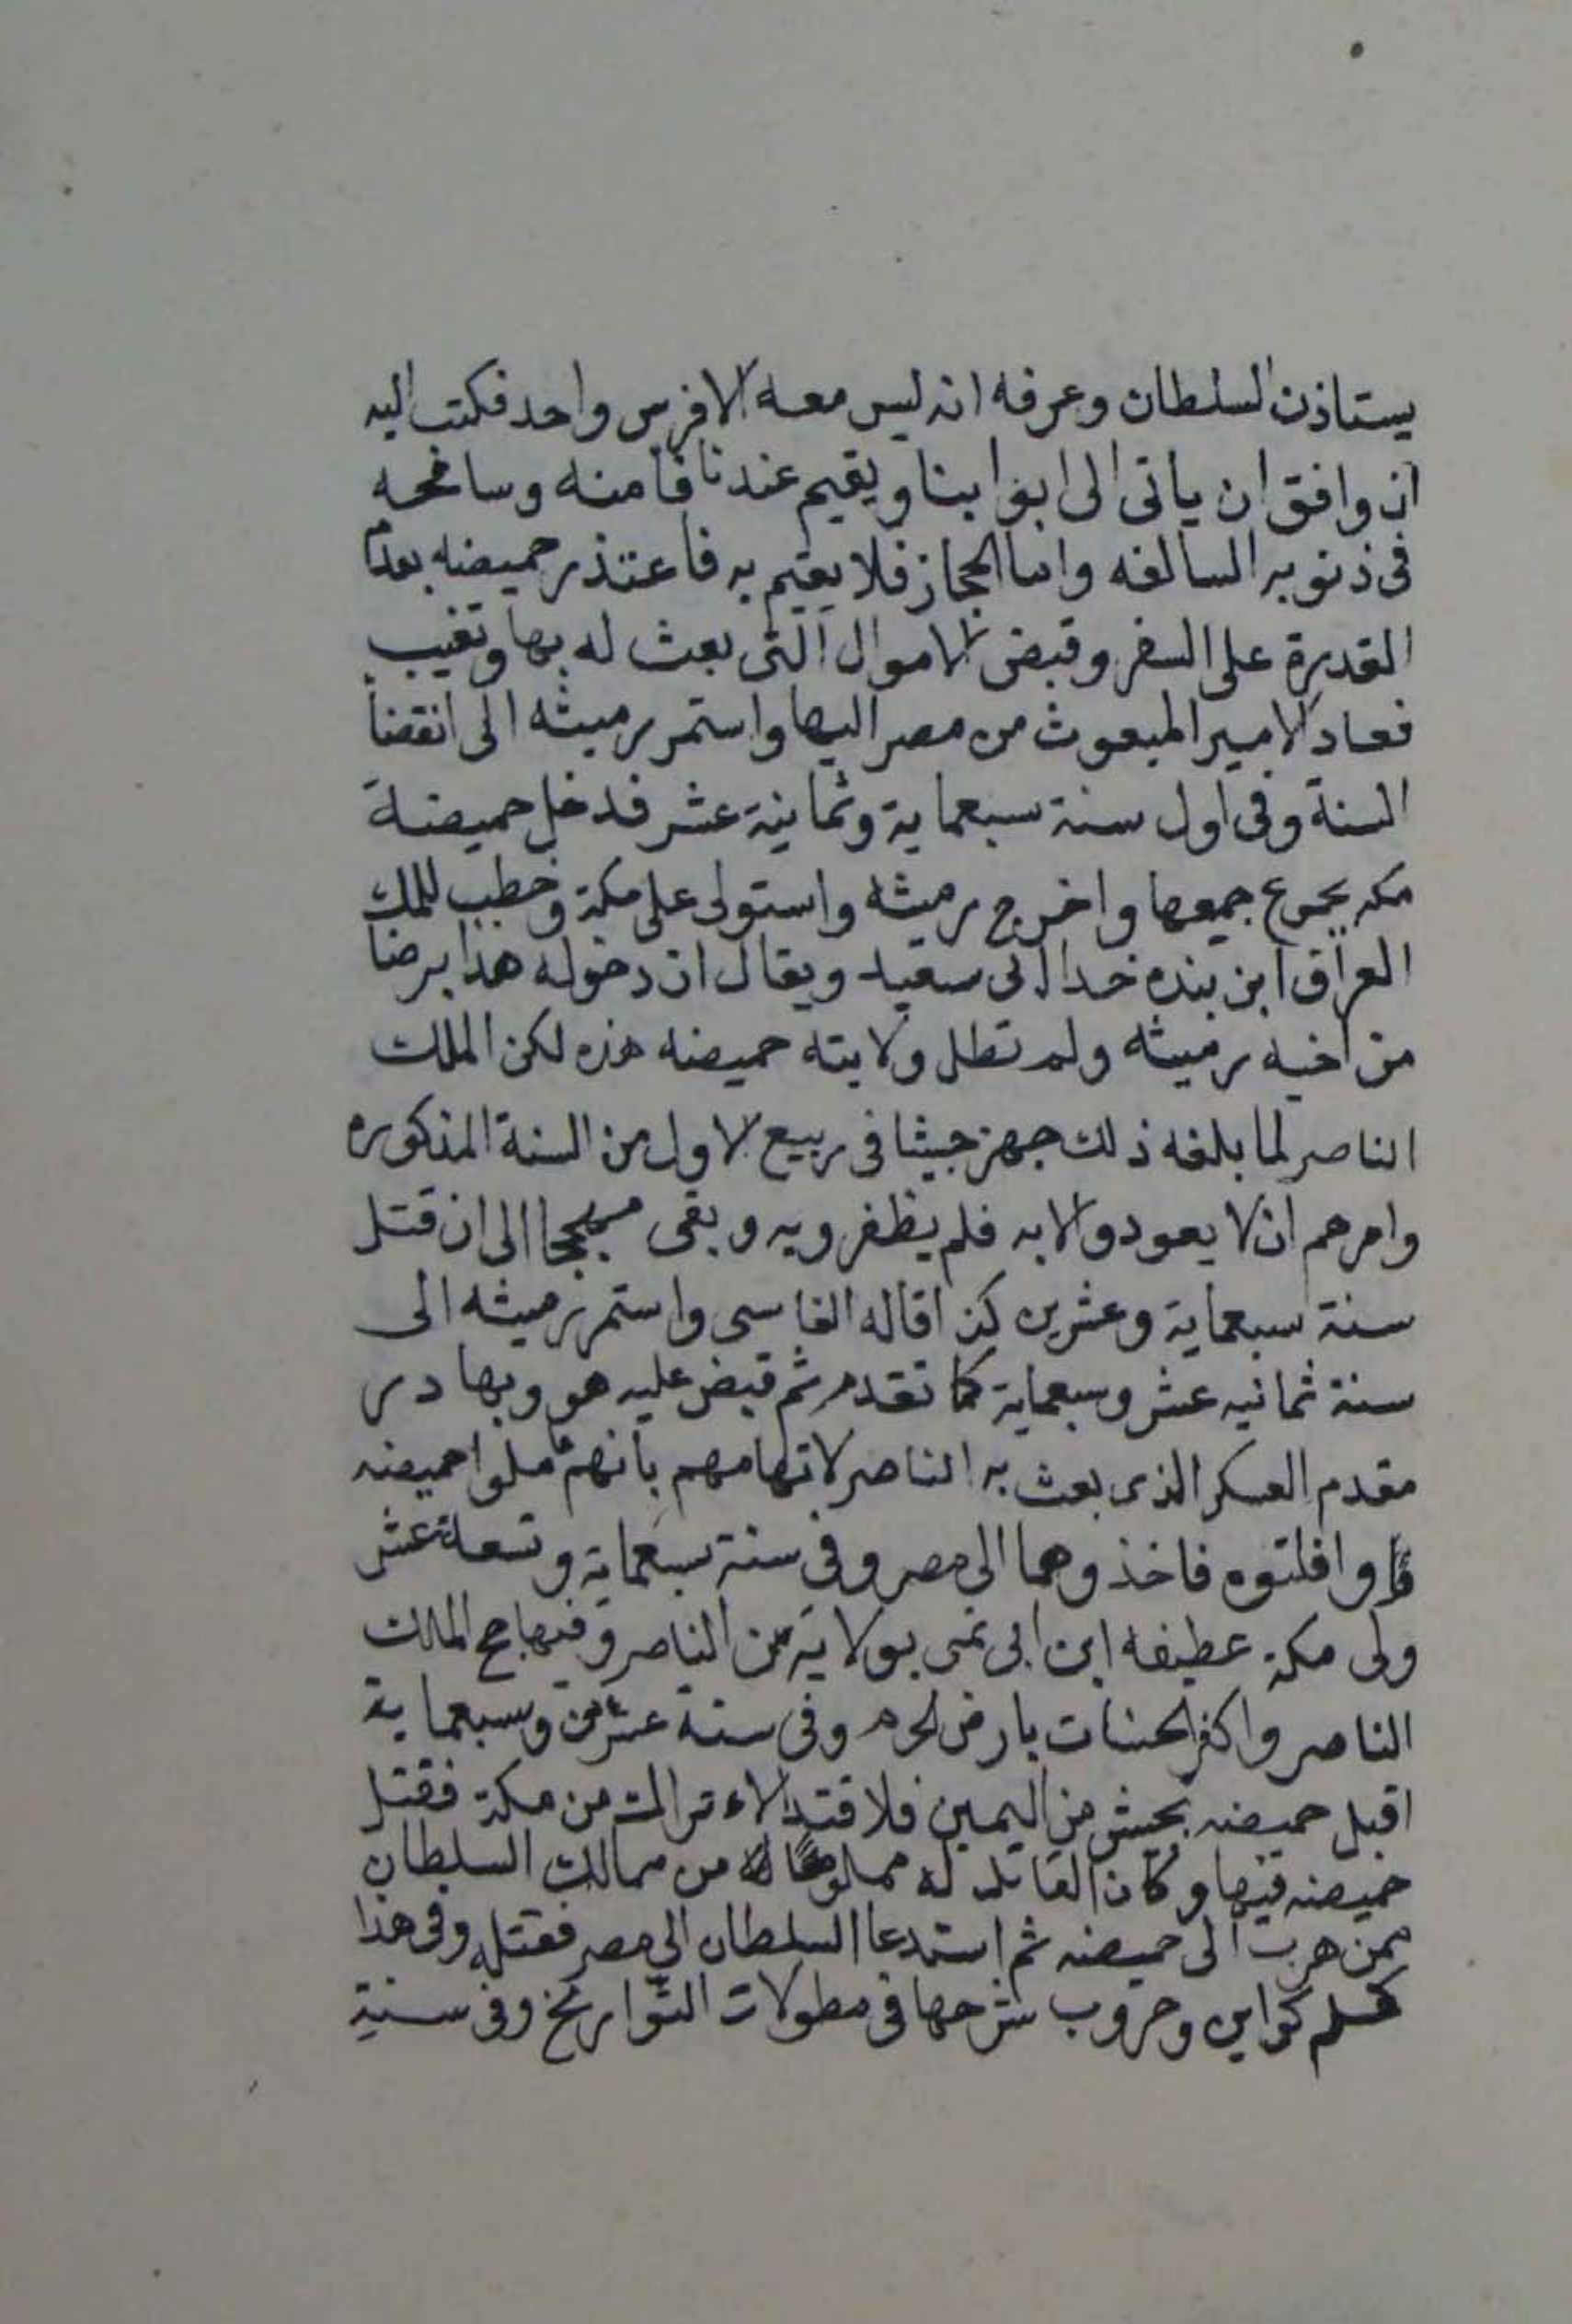 يستاذن السلطان وعرفه انه ليس معه الا فرس واحد فكتب اليه
ان وافق ان ياتى الى ابوابنا ويقيم عندنا فامنه وسامحه
فى ذنوبه السالفه واما الحجاز فلا يقيم به فاعتذر حميضه بعدم
القدرة على السفر وقبض الاموال التى بعث له بها وتغيب
فعاد الامير المبعوث من مصر اليها واستمر رميثه الى انقضا
السنة وفى اول سنة سبعماية وثمانية عشر فدخل حميضة
مكه بجموع جمعها واخرج رميثه واستولى على مكة وخطب للملك
العراق ابن بنده خدا ابى سعيد ويقال ان دخوله هذا برضا
من اخيه رميثه ولم تطل ولايته حميضه هذه لكن الملك
الناصر لما بلغه ذلك جهز جيشا فى ربيع الاول من السنة المذكوره
وامرهم ان لا يعودو الا به فلم يظفرو به وبقى الى ان قتل
سنة سبعماية وعشرين كذا قاله الفاسى واستمر رميثه الى
سنة ثمانيه عشر وسبعماية كما تقدم ثم قبض عليه هو وبهادر
مقدم العسكر الذى بعث به الناصر لاتهامهم بانهم حميضه
وافلتوه فاخذوهما الى مصر وفى سنة سبعماية وتسعة عشر
ولى مكة عطيفه ابن ابى نمى بولاية من الناصر وفيها حج المالك
الناصر واكثر الحسنات بارض الحرم وفى سنة عشرين وسبعماية
اقبل حميضه بجيش من اليمين الاتراك من مكة فقتل
حميضه فيها وكان القاتل له مملوكا له من ممالك السلطان
ممن هرب الى حميضه ثم استدعا السلطان الى مصر فقتله وفى هذا
وحروب شرحها فى مطولات التواريخ وفى سنة